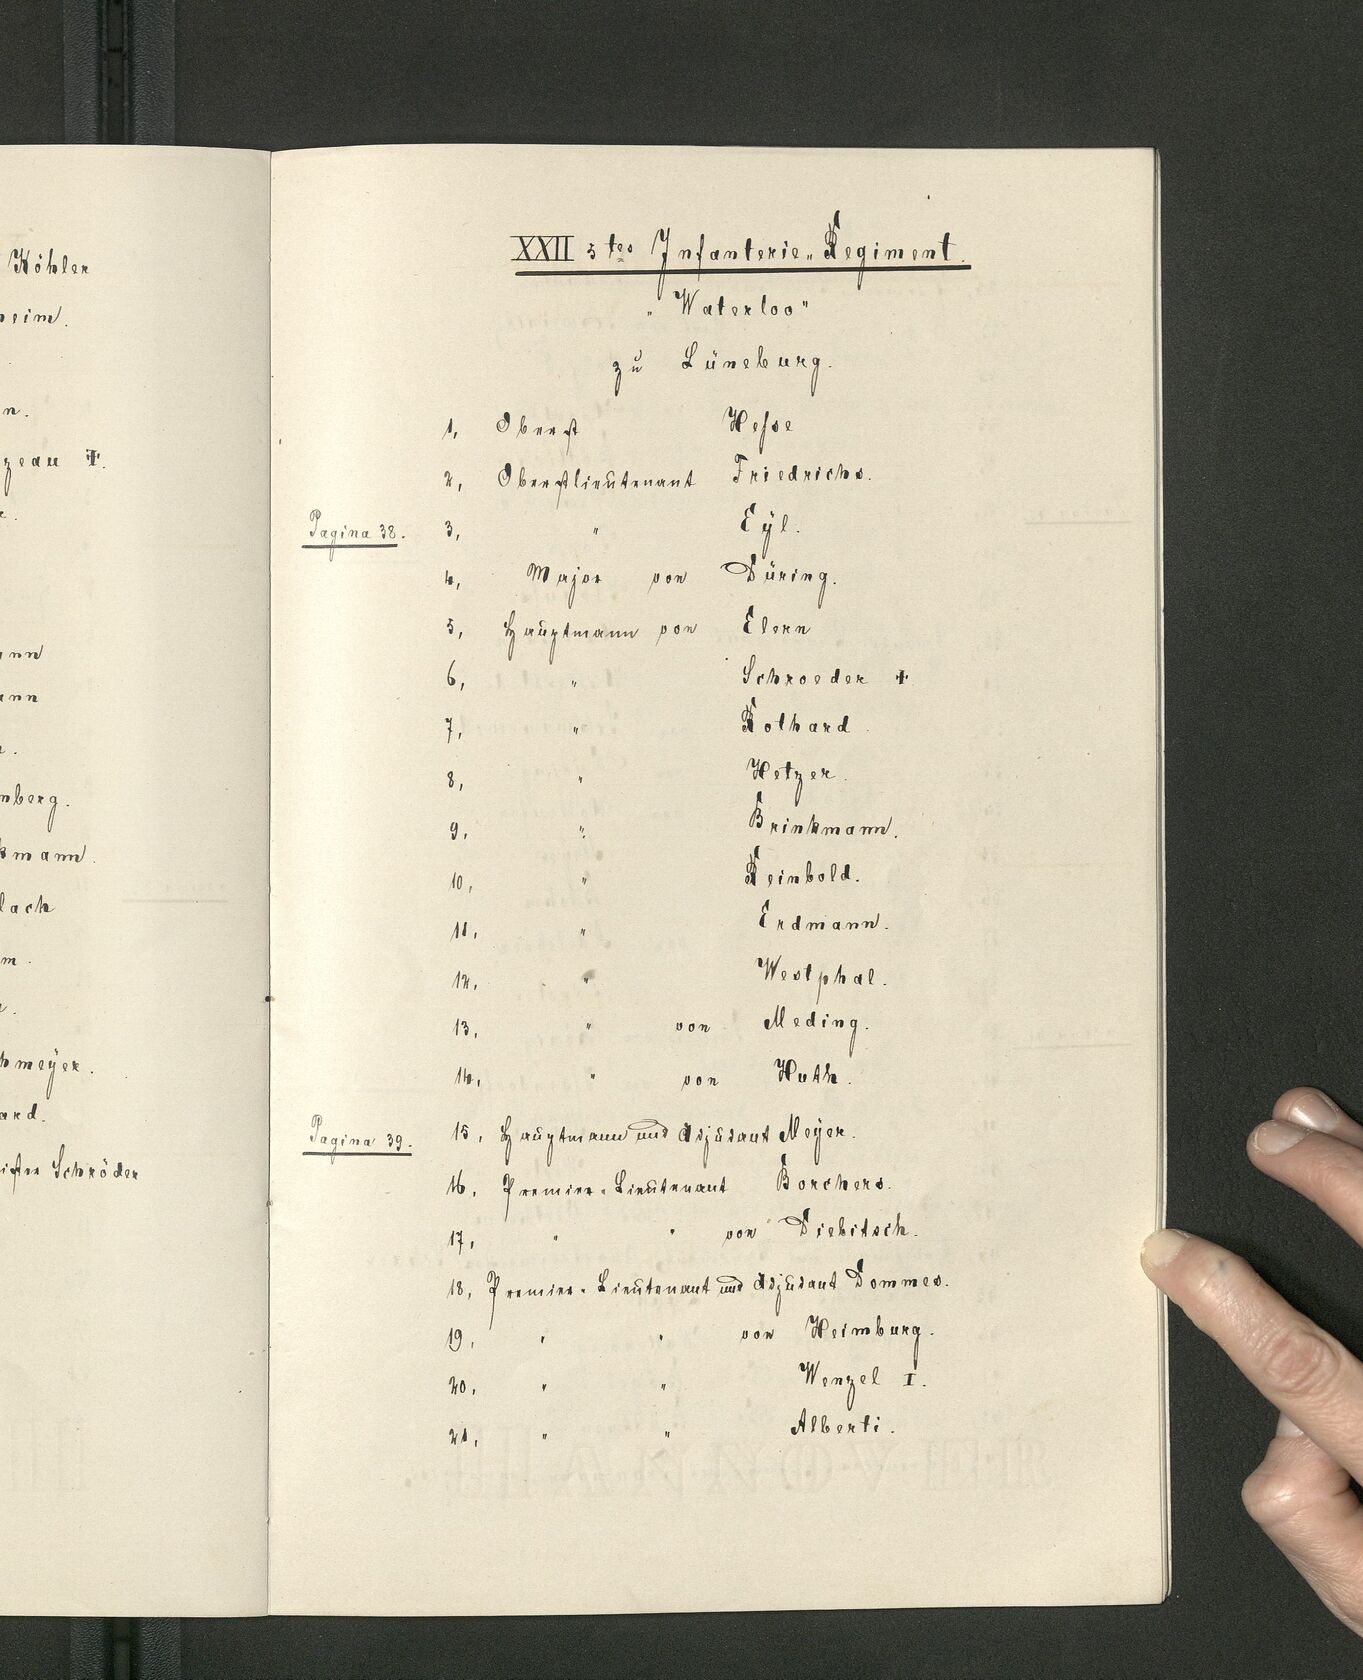 Köhler
heim.
n.
zeau ‡.
ann
ann
nberg.
kmann.
lach
m.
hmeÿer.
ard.
Schröder
XXII 5tes Infanterie-Regiment.
„Waterloo"
zu Lüneburg.
1, Oberst Hesse
2, Oberstlieutenant Friedrichs.
Pagina 38. 3, " Eÿl.
4, Major von Düring.
5, Hauptmann von Elern
6, " Schroeder ‡
7, " Rothard
8, " Hetzer.
9, " Brinkmann.
10, " Reinbold.
11, " Erdmann.
12, " Westphal.
13, " von Meding.
14, " von Huth.
Pagina 39. 15, Hauptmann und Adjudant Meÿer.
16, Premier-Lieutenant Borchers.
17, " " von Diebitsch.
18, Premier-Lieutenant und Adjudant Dommes.
19, " " von Heimburg.
20, " " Wenzel I.
21, " " Alberti.